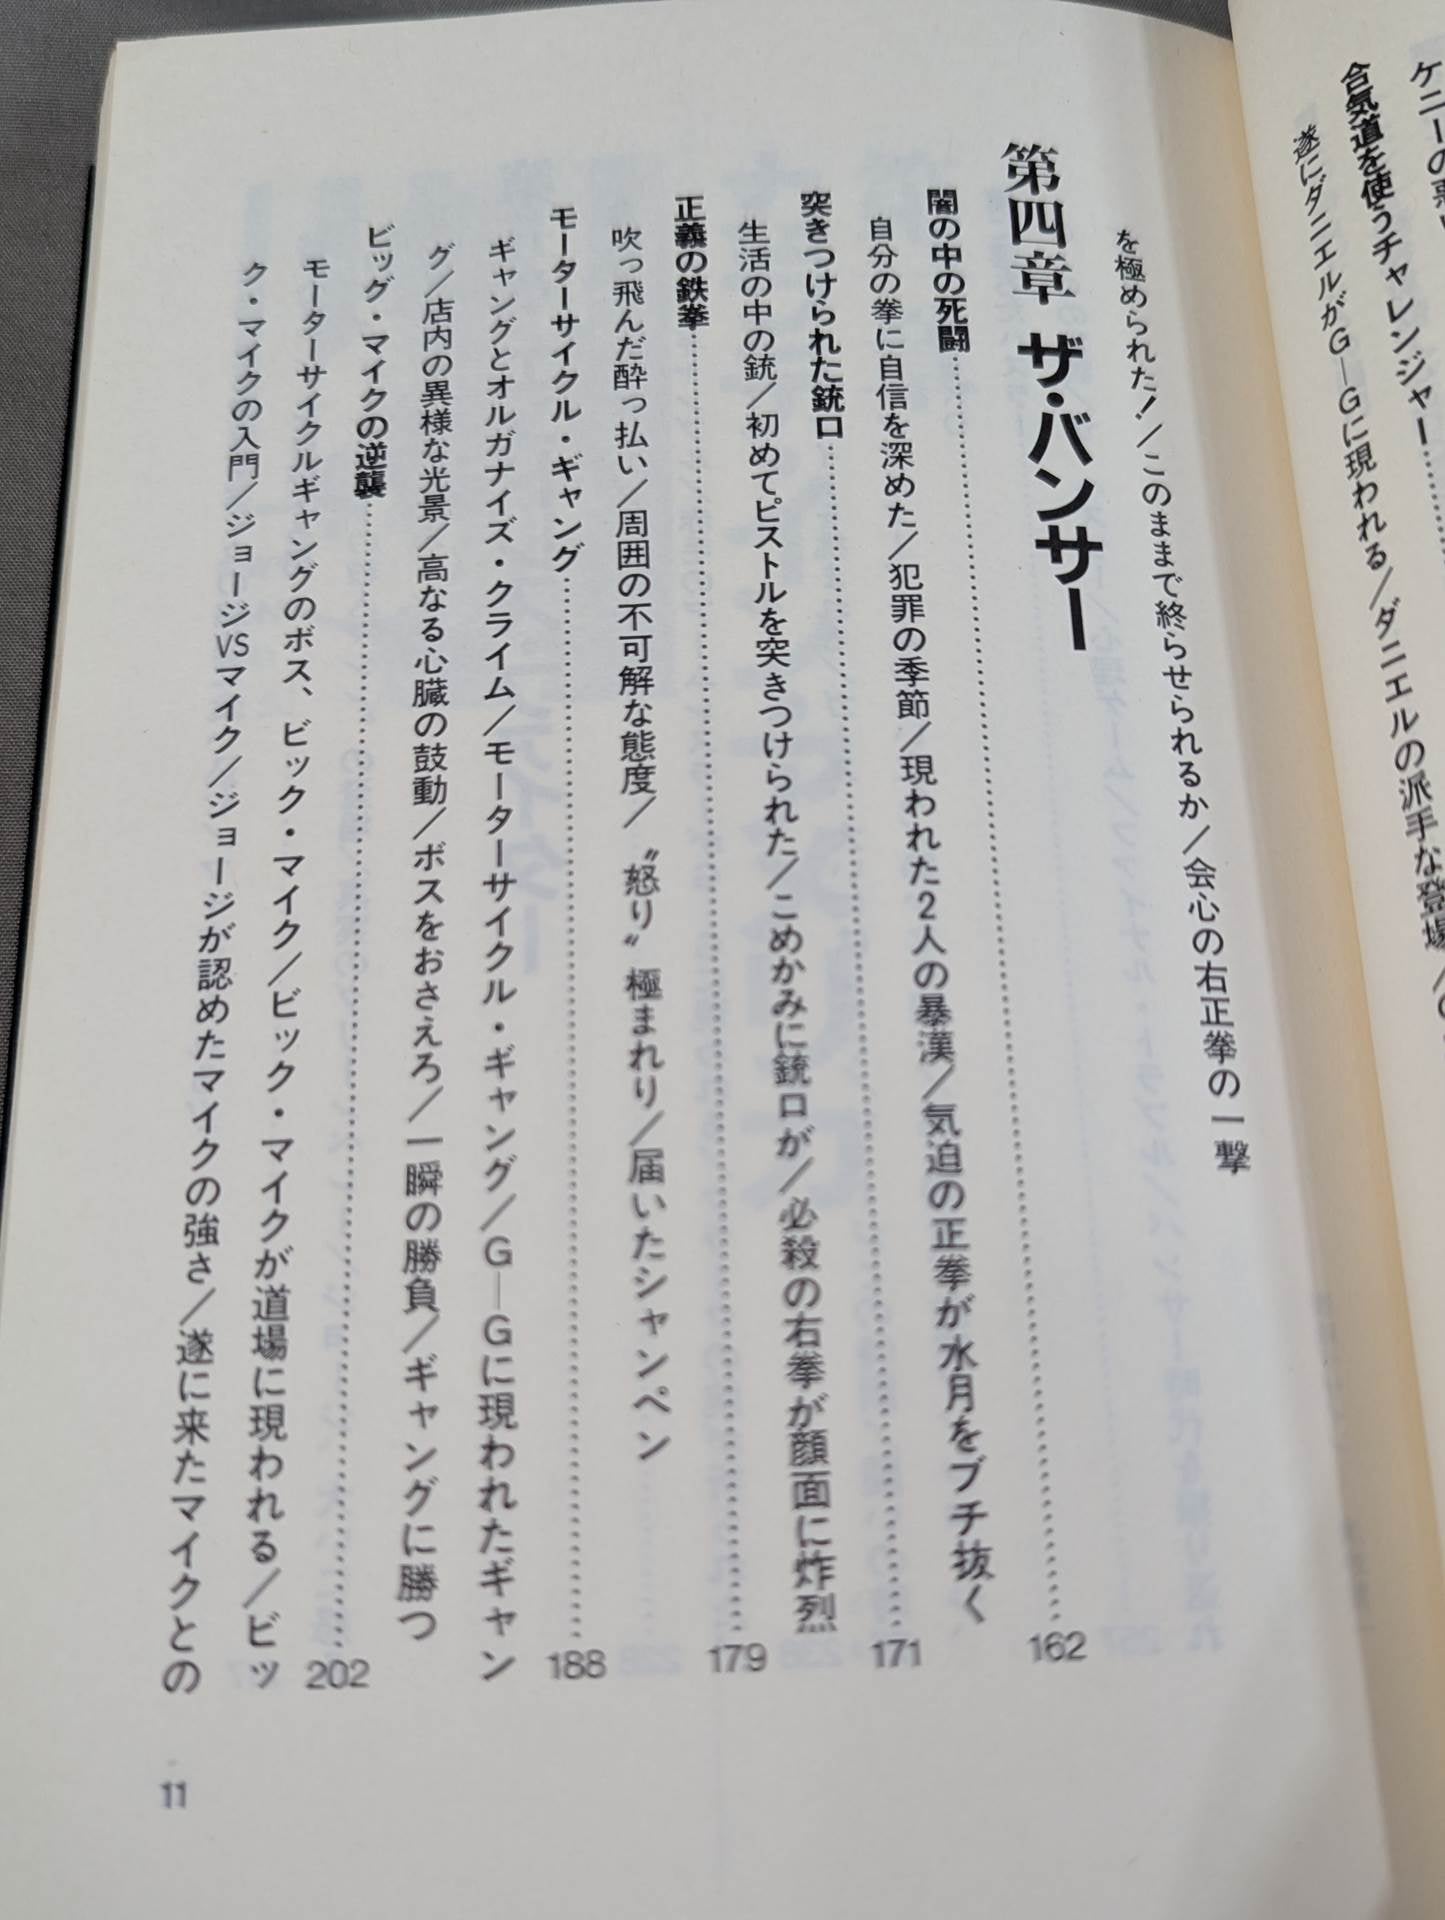 ケニーの
合気道を使うチャレンジャー
遂にダニエルがG—Gに現われる/ダニエルの派手な登場/
を極められた!/このままで終らせられるか/会心の右正拳の一撃
第四章 ザ・バンサー
闇の中の死闘 162
自分の拳に自信を深めた/犯罪の季節/現われた2人の暴漢/気迫の正拳が水月をブチ抜く
突きつけられた銃口 171
生活の中の銃/初めてピストルを突きつけられた/こめかみに銃口が/必殺の右拳が顔面に炸烈
正義の鉄拳 179
吹っ飛んだ酔っ払い/周囲の不可解な態度/〝怒り〟極まれり/届いたシャンペン
モーターサイクル・ギャング 188
ギャングとオルガナイズ・クライム/モーターサイクル・ギャング/G—Gに現われたギャン
グ/店内の異様な光景/高なる心臓の鼓動/ボスをおさえろ/一瞬の勝負/ギャングに勝つ
ビッグ・マイクの逆襲 202
モーターサイクルギャングのボス、ビック・マイク/ビック・マイクが道場に現われる/ビッ
ク・マイクの入門/ジョージVSマイク/ジョージが認めたマイクの強さ/遂に来たマイクとの
11